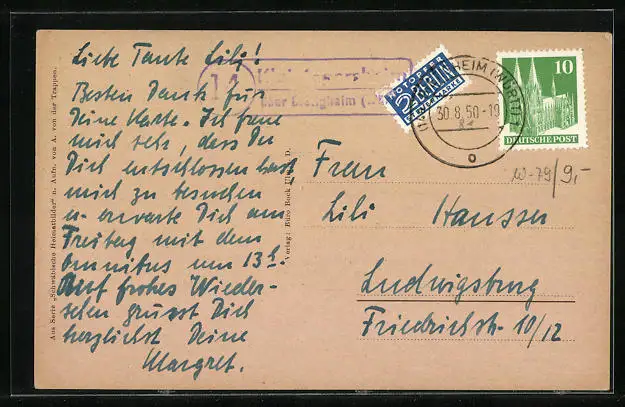 Liebe Tante Lilj!
Besten Dank für
Deine Karte. Ich freue
mich sehr, dass Du
Dich entschlossen hast
mich zu besuchen
u. erwarte Dich am
Freitag mit dem
Omnibus um 13 h.
Auf frohes Wieder-
sehen grüsst Dich
herzlichst Deine
Margret.
Aus Serie „Schwäbische Heimatbilder" n. Aufn. von A. von der Trappen.
Verlag: Büro Beck
14
über Besigheim
NOTOPFER
2 BERLIN
STEUERMARKE
HEIM (WÜRTT)
30.8.50-19
10
DEUTSCHE POST
W-79/9,-
Frau
Lili Hansser
Ludwigsburg
Friedrichstr. 10/12